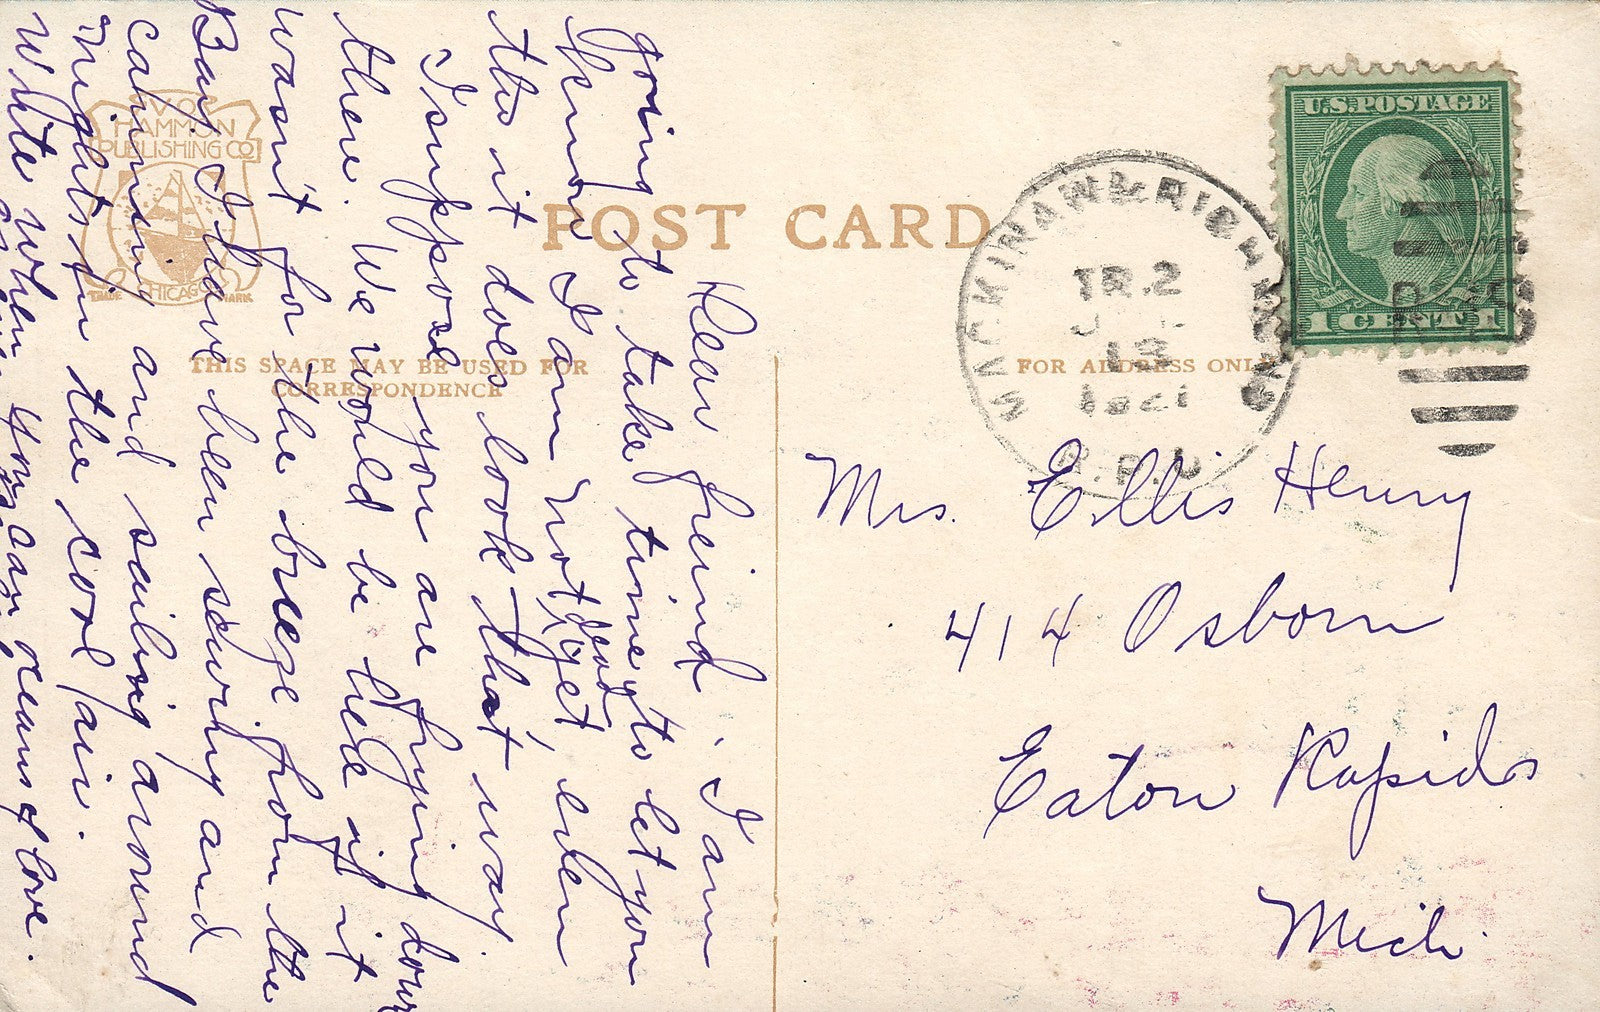 V.O. HAMMON
PUBLISHING CO
CHICAGO
TRADE MARK
POST CARD
THIS SPACE MAY BE USED FOR
CORRESPONDENCE
FOR ADDRESS ONLY
U.S. POSTAGE
1 CENT 1
TR. 2
13
1921
R.P.O.
Dear freind, I am
going to take time to let you
know I am not dead yet, even
tho it does look that way.
I suppose you are frying down
there. We would be here if it
wasn't for the breeze from the
Bay. I have been sewing and
canning and sailing around
nights in the cool air.
Write when you can oceans of love.
Mrs. Ellis Henry
414 Osborn
Eaton Rapids
Mich.